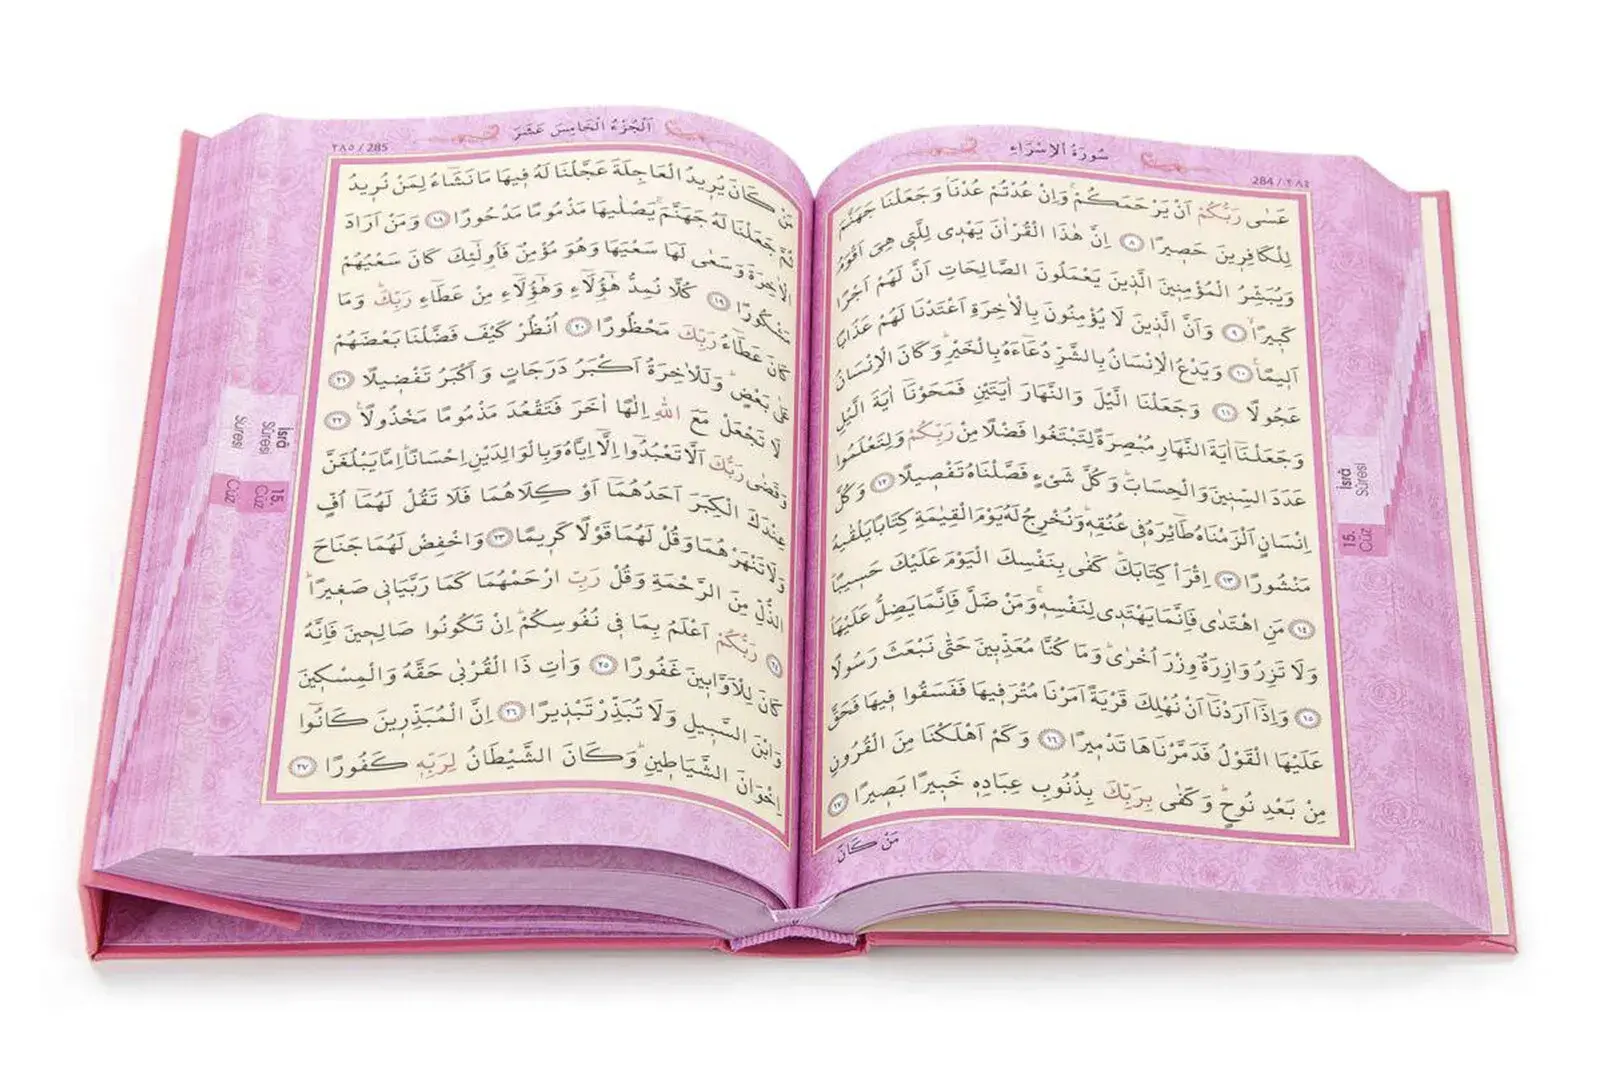 سُورَةُ الْاِسْرَاءِ
284 / ٢٨٤
عَسٰى رَبُّكُمْ اَنْ يَرْحَمَكُمْۚ وَاِنْ عُدْتُمْ عُدْنَاۢ وَجَعَلْنَا جَهَنَّمَ
لِلْكَافِر۪ينَ حَص۪يرًا ﴿٨﴾ اِنَّ هٰذَا الْقُرْاٰنَ يَهْد۪ي لِلَّت۪ي هِيَ اَقْوَمُ
وَيُبَشِّرُ الْمُؤْمِن۪ينَ الَّذ۪ينَ يَعْمَلُونَ الصَّالِحَاتِ اَنَّ لَهُمْ اَجْرًا
كَب۪يرًاۙ ﴿٩﴾ وَاَنَّ الَّذ۪ينَ لَا يُؤْمِنُونَ بِالْاٰخِرَةِ اَعْتَدْنَا لَهُمْ عَذَابًا
اَل۪يمًا۟ ﴿١٠﴾ وَيَدْعُ الْاِنْسَانُ بِالشَّرِّ دُعَٓاءَهُ بِالْخَيْرِۜ وَكَانَ الْاِنْسَانُ
عَجُولًا ﴿١١﴾ وَجَعَلْنَا الَّيْلَ وَالنَّهَارَ اٰيَتَيْنِ فَمَحَوْنَٓا اٰيَةَ الَّيْلِ
وَجَعَلْنَٓا اٰيَةَ النَّهَارِ مُبْصِرَةً لِتَبْتَغُوا فَضْلًا مِنْ رَبِّكُمْ وَلِتَعْلَمُوا
عَدَدَ السِّن۪ينَ وَالْحِسَابَۜ وَكُلَّ شَيْءٍ فَصَّلْنَاهُ تَفْص۪يلًا ﴿١٢﴾ وَكُلَّ
اِنْسَانٍ اَلْزَمْنَاهُ طَٓائِرَهُ ف۪ي عُنُقِه۪ۜ وَنُخْرِجُ لَهُ يَوْمَ الْقِيٰمَةِ كِتَابًا يَلْقٰيهُ
مَنْشُورًا ﴿١٣﴾ اِقْرَأْ كِتَابَكَۜ كَفٰى بِنَفْسِكَ الْيَوْمَ عَلَيْكَ حَس۪يبًاۜ
﴿١٤﴾ مَنِ اهْتَدٰى فَاِنَّمَا يَهْتَد۪ي لِنَفْسِه۪ۚ وَمَنْ ضَلَّ فَاِنَّمَا يَضِلُّ عَلَيْهَاۜ
وَلَا تَزِرُ وَازِرَةٌ وِزْرَ اُخْرٰىۜ وَمَا كُنَّا مُعَذِّب۪ينَ حَتّٰى نَبْعَثَ رَسُولًا
﴿١٥﴾ وَاِذَٓا اَرَدْنَٓا اَنْ نُهْلِكَ قَرْيَةً اَمَرْنَا مُتْرَف۪يهَا فَفَسَقُوا ف۪يهَا فَحَقَّ
عَلَيْهَا الْقَوْلُ فَدَمَّرْنَاهَا تَدْم۪يرًا ﴿١٦﴾ وَكَمْ اَهْلَكْنَا مِنَ الْقُرُونِ
مِنْ بَعْدِ نُوحٍۜ وَكَفٰى بِرَبِّكَ بِذُنُوبِ عِبَادِه۪ خَب۪يرًا بَص۪يرًا ﴿١٧﴾
مَنْ كَانَ
İsrâ
Sûresi
15.
Cüz
اَلْجُزْءُ الْخَامِسَ عَشَرَ
٢٨٥ / 285
مَنْ كَانَ يُر۪يدُ الْعَاجِلَةَ عَجَّلْنَا لَهُ ف۪يهَا مَا نَشَٓاءُ لِمَنْ نُر۪يدُ
ثُمَّ جَعَلْنَا لَهُ جَهَنَّمَۚ يَصْلٰيهَا مَذْمُومًا مَدْحُورًا ﴿١٨﴾ وَمَنْ اَرَادَ
الْاٰخِرَةَ وَسَعٰى لَهَا سَعْيَهَا وَهُوَ مُؤْمِنٌ فَاُو۬لٰٓئِكَ كَانَ سَعْيُهُمْ
مَشْكُورًا ﴿١٩﴾ كُلًّا نُمِدُّ هٰٓؤُ۬لَٓاءِ وَهٰٓؤُ۬لَٓاءِ مِنْ عَطَٓاءِ رَبِّكَۜ وَمَا
كَانَ عَطَٓاءُ رَبِّكَ مَحْظُورًا ﴿٢٠﴾ اُنْظُرْ كَيْفَ فَضَّلْنَا بَعْضَهُمْ
عَلٰى بَعْضٍۜ وَلَلْاٰخِرَةُ اَكْبَرُ دَرَجَاتٍ وَاَكْبَرُ تَفْض۪يلًا ﴿٢١﴾
لَا تَجْعَلْ مَعَ اللّٰهِ اِلٰهًا اٰخَرَ فَتَقْعُدَ مَذْمُومًا مَخْذُولًا۟ ﴿٢٢﴾
وَقَضٰى رَبُّكَ اَلَّا تَعْبُدُٓوا اِلَّٓا اِيَّاهُ وَبِالْوَالِدَيْنِ اِحْسَانًاۜ اِمَّا يَبْلُغَنَّ
عِنْدَكَ الْكِبَرَ اَحَدُهُمَٓا اَوْ كِلَاهُمَا فَلَا تَقُلْ لَهُمَٓا اُفٍّ
وَلَا تَنْهَرْهُمَا وَقُلْ لَهُمَا قَوْلًا كَر۪يمًا ﴿٢٣﴾ وَاخْفِضْ لَهُمَا جَنَاحَ
الذُّلِّ مِنَ الرَّحْمَةِ وَقُلْ رَبِّ ارْحَمْهُمَا كَمَا رَبَّيَان۪ي صَغ۪يرًاۜ
﴿٢٤﴾ رَبُّكُمْ اَعْلَمُ بِمَا ف۪ي نُفُوسِكُمْۜ اِنْ تَكُونُوا صَالِح۪ينَ فَاِنَّهُ
كَانَ لِلْاَوَّاب۪ينَ غَفُورًا ﴿٢٥﴾ وَاٰتِ ذَا الْقُرْبٰى حَقَّهُ وَالْمِسْك۪ينَ
وَابْنَ السَّب۪يلِ وَلَا تُبَذِّرْ تَبْذ۪يرًا ﴿٢٦﴾ اِنَّ الْمُبَذِّر۪ينَ كَانُٓوا
اِخْوَانَ الشَّيَاط۪ينِۜ وَكَانَ الشَّيْطَانُ لِرَبِّه۪ كَفُورًا ﴿٢٧﴾
İsrâ
Sûresi
Sûresi
15.
Cüz
Cüz